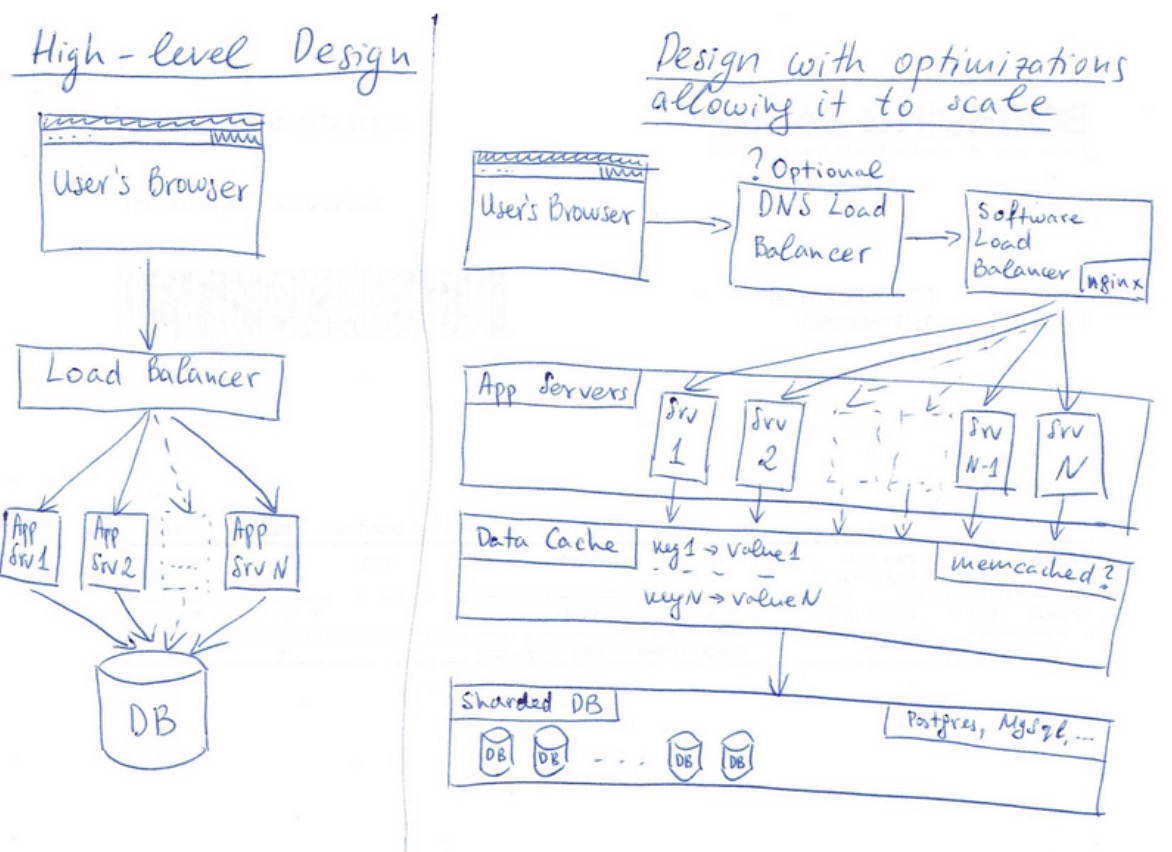 High-level Design
User's Browser
Load Balancer
App
Srv 1
App
Srv 2
....
App
Srv N
DB
Design with optimizations
allowing it to scale
User's Browser
? Optional
DNS Load
Balancer
Software
Load
Balancer
nginx
App Servers
Srv
1
Srv
2
Srv
N-1
Srv
N
Data Cache
key1 → value1
keyN → valueN
memcached?
Sharded DB
Postgres, MySql, ...
DB
DB
. . . .
DB
DB